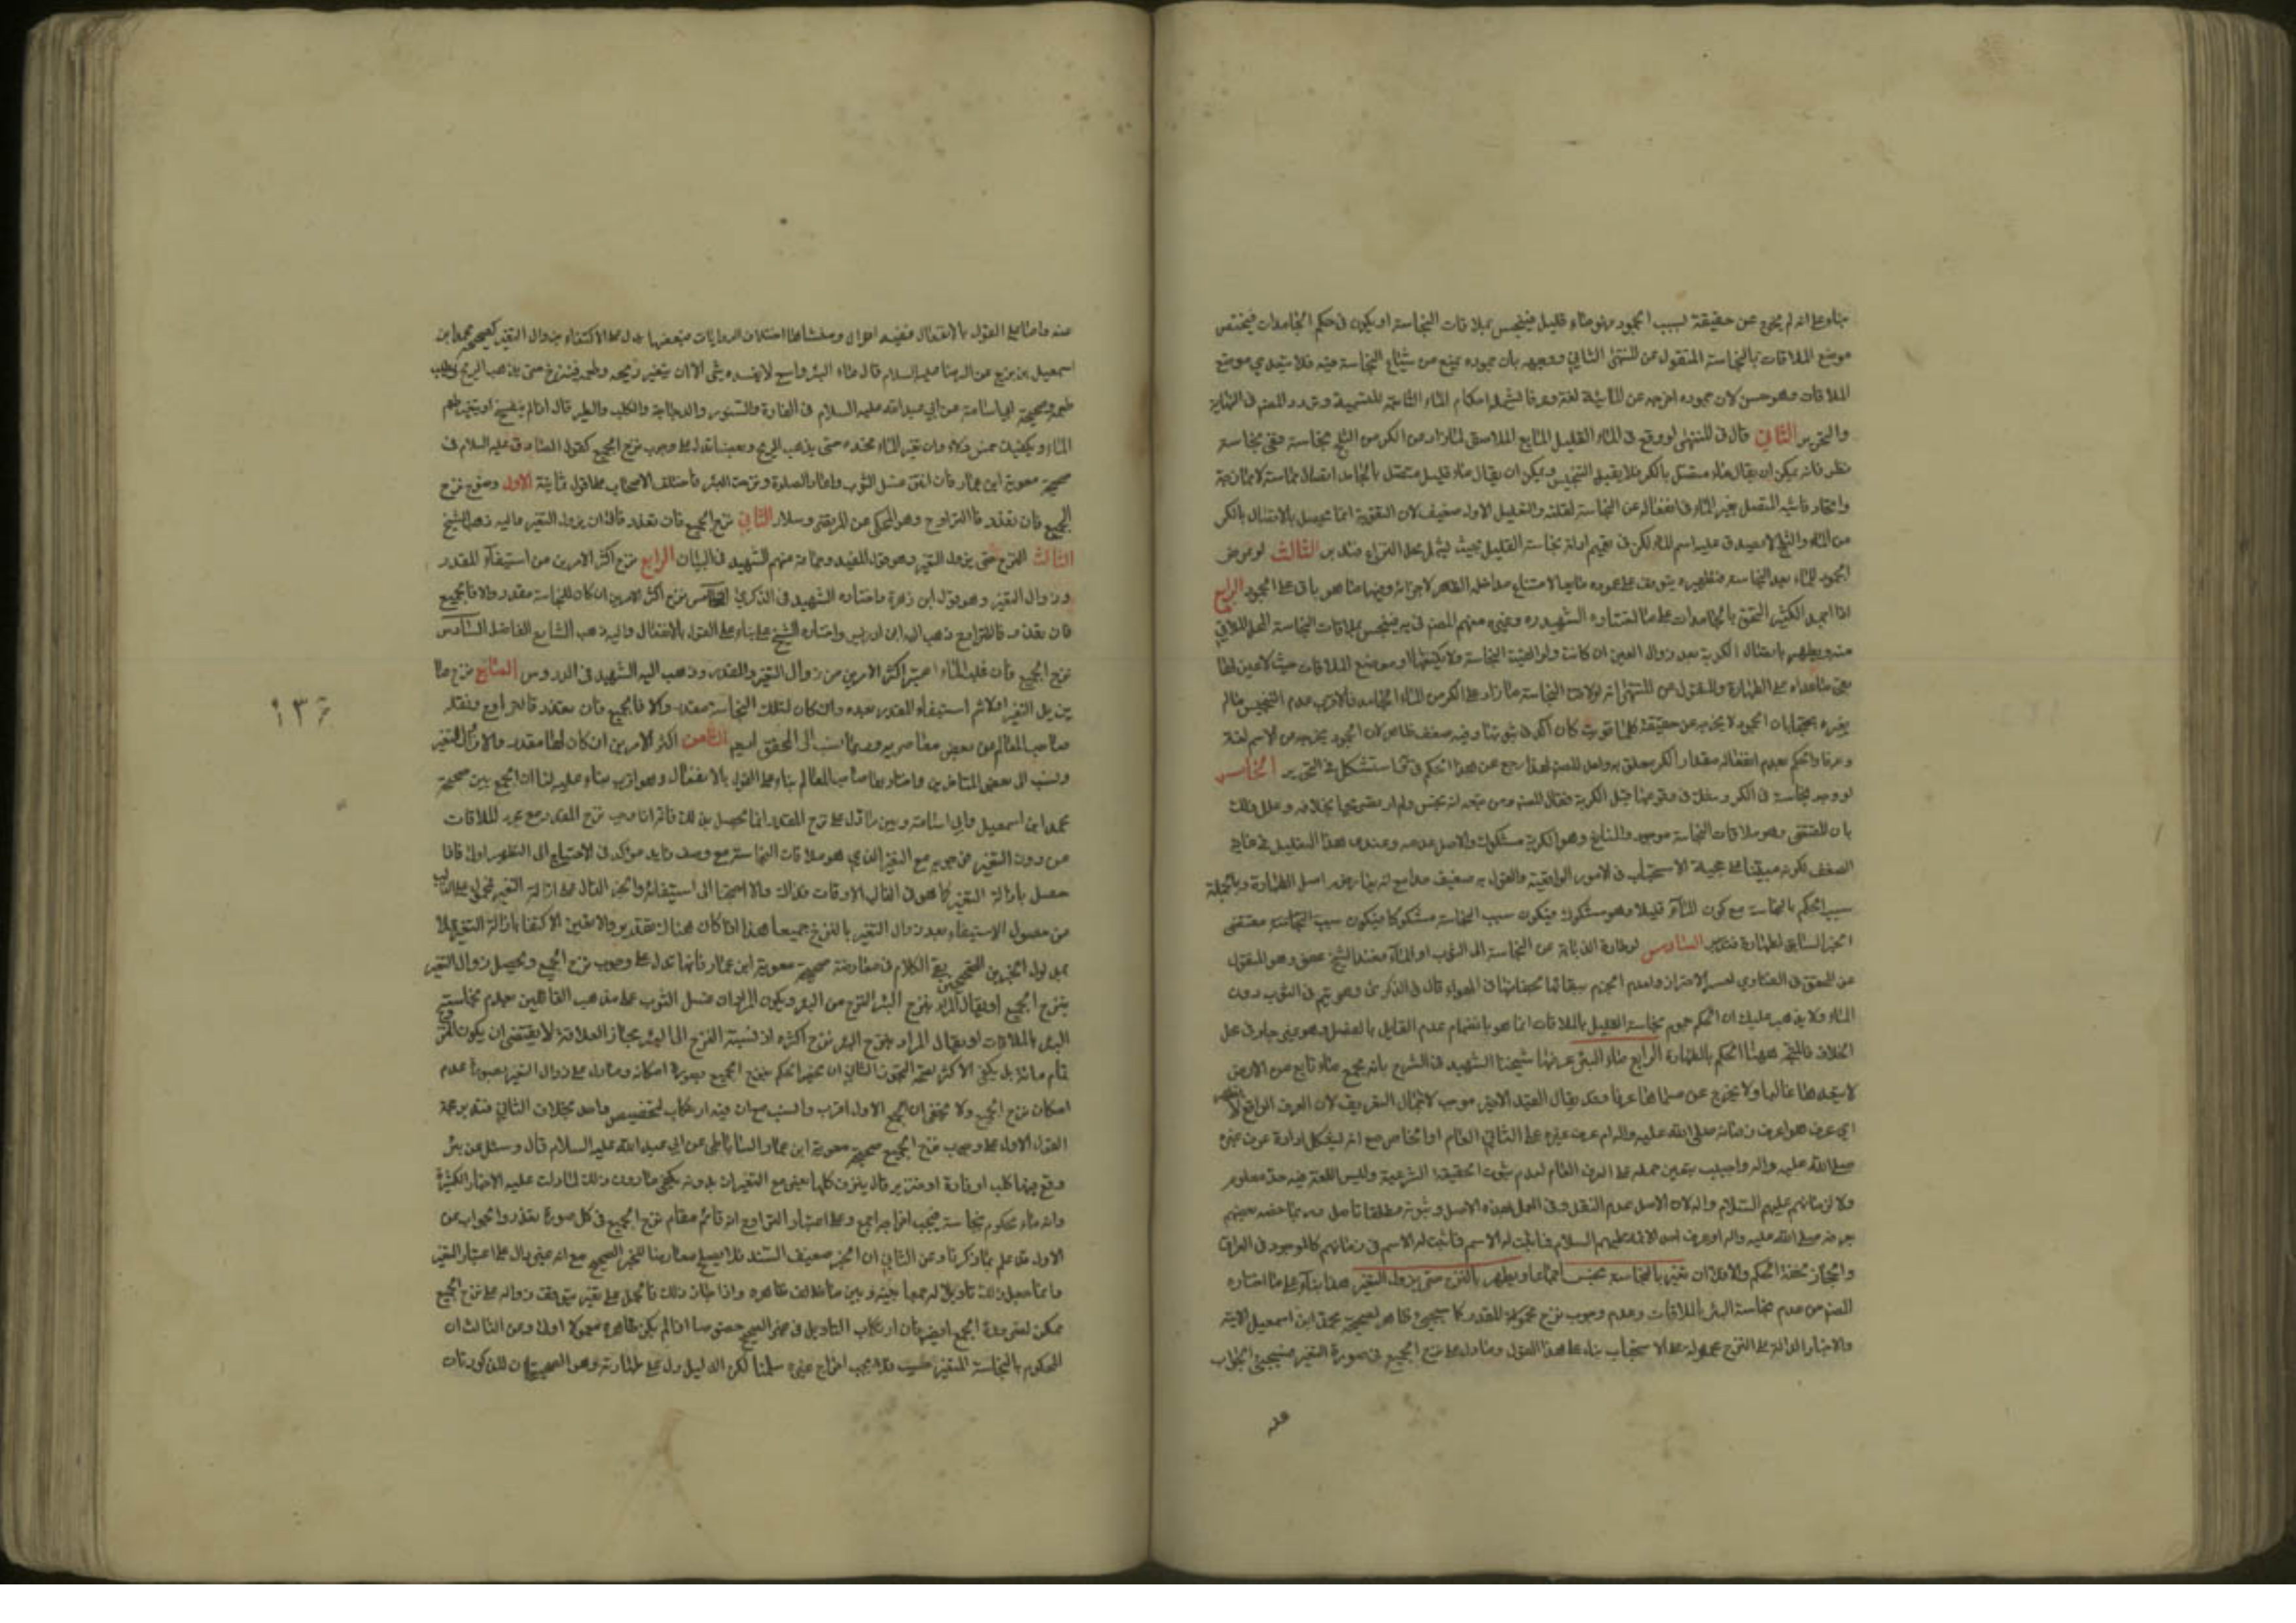 بناء على انه لم يخرج عن حقيقته بسبب الجمود فهو ماء قليل فينجس بملاقات النجاسة او يكون في حكم الجامدات فيختص
موضع الملاقات بالنجاسة المنقول عن المنتهى الثاني ووجهه بان جموده يمنع من شياع النجاسة فيه فلا يتعدى موضع
الملاقات وهو حسن لان جموده اخرجه عن المائية لغة وعرفا احكام الماء الثابتة وتردد المص في النهاية
والتحرير الثاني قال في المنتهى لو وقع في الماء القليل المايع الملاصق لما زاد من الكر من الثلج نجاسة ففي نجاسة
نظر فانه يمكن ان يقال ماء متصل بالكر فلا يقبل التنجيس ويمكن ان يقال ماء قليل متصل بالجامد اتصال مماسة لا ممازجة
واتحاد فاشبه المتصل بغير الماء في انفعاله عن النجاسة لقلته والتعليل الاول ضعيف لان التقوية انما تحصل بالاتصال بالكر
من الماء والثلج لا يصدق عليه اسم الماء لكن في تعميم ادلة نجاسة القليل بحيث يشمل محل النزاع الثالث لو عرض
الجمود للماء بعد النجاسة فتطهيره يتوقف على عوده مايعا لامتناع مداخلة المطهر لاجزائه وفيها ما هو باق على الجمود الرابع
اذا اجمد الكثير التحق بالجامدات على ما اختاره الشهيد ره وغيره منهم المص فينجس بملاقات النجاسة المحل الملاقي
منه ويطهر باتصال الكر به بعد زوال العين ان كانت
بقي ما عداه على الطهارة والمنقول عن المنتهى انه لو لاقت النجاسة ما زاد على الكر من الماء الجامد فالاقرب عدم التنجيس مالم
يغيره محتجا بان الجمود لا يخرجه عن حقيقته كان اكد في ثبوتها وفيه ضعف ظاهر لان الجمود يخرجه عن الاسم لغة
وعرفا والحكم بعدم انفعال مقدار الكر معلق به ولعل المص لهذا رجع عن هذا الحكم في استشكل في التحرير الخامس
لو وجد نجاسة في الكر وشك في وقوعها قبل الكرية فقال المص ومن تبعه انه نجس ولم ار مصرحا بخلافه وعلل ذلك
بان المقتضى وهو ملاقات النجاسة موجود والمانع وهو الكرية مشكوك والاصل عدمه وعندي هذا التعليل في غاية
الضعف لكونه مبتنيا على حجية الاستصحاب في الامور الواقعية والقول به ضعيف مع انه يعارض اصل الطهارة وبالجملة
سبب الحكم بالنجاسة مع كون الماء قليلا وهو مشكوك فيكون سبب النجاسة مشكوكا فيكون سبب النجاسة مقتضى
الخبر السابق لطهارة فتدبر السادس لو طارت الذبابة عن النجاسة الى الثوب او الماء فعند الشيخ عفو وهو المنقول
عن المحقق في الفتاوى لعسر الاحتراز ولعدم الجزم ببقائها لجفافها في الهواء قال في الذكرى وهو يتم في الثوب دون
الماء ولا يذهب عليك ان الحكم بعموم نجاسة القليل بالملاقات انما هو بانضمام عدم القايل بالفصل وهو غير جار في محل
الخلاف فالمتجه ههنا الحكم بالطهارة الرابع ماء البئر عرفها شيخنا الشهيد في الشرح بانه مجمع ماء نابع من الارض
لا يتعداها غالبا ولا يخرج عن مسماها عرفا وقد يقال القيد الاخير موجب لاجمال التعريف لان العرف الواقع
اي عرف هو اعرف زمانه صلى الله عليه واله ام عرف غيره على الثاني العام او الخاص مع انه يشكل ارادة عرف غيره
صلى الله عليه واله واجيب بتعين حمله على العرف العام لعدم ثبوت الحقيقة الشرعية وليس للغة فيه حد معلوم
ولا لزمانهم عليهم السلام والا لان الاصل عدم النقل وفي العمل بهذا الاصل وثبوته مطلقا تامل وربما خصه بعضهم
بعرفه صلى الله عليه واله او عرف احد الائمة عليهم السلام فما ثبت له الاسم في زمانهم كالموجود في العراق
والحجاز لحقه الحكم والا فلا ان تغير بالنجاسة نجس اجماعا ويطهر بالنزح حتى يزول التغير هذا بناء على ما اختاره
المص من عدم نجاسة البئر بالملاقات وعدم وجوب نزح المقدر كما سيجيئ وظاهر لصحيحة محمد ابن اسمعيل الاتية
والاخبار الدالة على النزح محمولة على الاستحباب بناء على هذا القول وما دل على نزح الجميع في صورة التغير فسيجيئ الجواب
عنه
عنه واما على القول بالانفعال ففيه اقوال ومنشاها اختلاف الروايات فبعضها يدل على الاكتفاء بزوال التغير كصحيحة محمد ابن
اسمعيل بن بزيع عن الرضا عليه السلام قال ماء البئر واسع لا يفسده شئ الا ان يتغير ريحه وطعمه فينزح حتى يذهب الريح ويطيب
طعمه وصحيحة ابي اسامة عن ابي عبد الله عليه السلام في الفارة والسنور والدجاجة والكلب والطير قال اذا لم ينفسخ او يتغير طعم
الماء ويكفيك خمس دلاء وان تغير الماء فخذه حتى يذهب الريح وبعضها تدل على وجوب نزح الجميع كقول الصادق عليه السلام في
صحيحة معوية ابن عمار فان انتن غسل الثوب واعاد الصلوة ونزحت البئر فاختلف الاصحاب على اقوال ثمانية الاول وجوب نزح
الجميع فان تعذر فالتراوح وهو المحكي عن المرتضى وسلار الثاني نزح الجميع فان تعذر فالى ان يزول التغير واليه ذهب الشيخ
الثالث النزح حتى يزول التغير وهو قول المفيد وجماعة منهم الشهيد في البيان الرابع نزح اكثر الامرين من استيفاء المقدر
وزوال التغير وهو قول ابن زهرة واختاره الشهيد في الذكرى الخامس نزح اكثر الامرين ان كان للنجاسة مقدر والا فالجميع
فان تعذر فالتراوح ذهب اليه ابن ادريس واختاره الشيخ علي بناء على القول بالانفعال واليه ذهب الشارح الفاضل السادس
نزح الجميع فان غلب الماء اعتبر اكثر الامرين من زوال التغير والمقدر وذهب اليه الشهيد في الدروس السابع نزح ما
يزيل التغير اولا ثم استيفاء المقدر بعده وان كان لتلك النجاسة مقدر والا فالجميع فان تعذر فالتراوح ونقله
صاحب المعالم عن بعض معاصريه وربما نسب الى المحقق ايضا الثامن اكثر الامرين ان كان لها مقدر والا زال التغير
ونسب الى بعض المتاخرين واختاره صاحب المعالم بناء على القول بالانفعال وهو اقرب بناء عليه لنا ان الجمع بين صحيحة
محمد ابن اسمعيل وابي اسامة وبين ما دل على نزح المقدر انما يحصل بذلك فانه اذا وجب نزح المقدر مع مجرد الملاقات
من دون التغير فوجوبه مع التغير الذي هو ملاقات النجاسة مع وصف زايد مؤكد في الاحتياج الى التطهير اولى فاذا
حصل بازالة التغير كما هو في الغالب الاوقات فذاك والا احتجنا الى استيفائه والخبر الدال على ازالة التغير محمول على الغالب
من حصول الاستيفاء بعد زوال التغير بالنزح جميعا هذا اذا كان هناك تقدير والا تعين الاكتفا بازالة التغير عملا
بمدلول الخبرين الصحيحين بقي الكلام في معارضة صحيحة معوية ابن عمار فانها تدل على وجوب نزح الجميع ويحصل زوال التغير
بنزح الجميع او يقال المراد بنزح البئر النزح من البئر ويكون المراد ان غسل الثوب على مذهب القائلين بعدم نجاسة
البئر بالملاقات او يقال المراد بنزح البئر نزح اكثره اذ نسبة النزح الى البئر مجاز العلاقة لا يقتضى ان يكون المنزوح
تمام مائه بل يكفي الاكثر الثاني ان يخير الحكم بنزح الجميع بصورة امكانه وما دل على زوال التغير بصورة عدم
امكان نزح الجميع ولا يخفى ان الجمع الاول اقرب وانسب مع ان فيه ارتكاب تخصيص واحد بخلاف الثاني فتدبر حجة
القول الاول على وجوب نزح الجميع صحيحة معوية ابن عمار والساباطي عن ابي عبد الله عليه السلام قال وسئل عن بئر
وقع فيها كلب او فارة او خنزير قال ينزف كلها يعنى مع التغير لان بدونه يكفي ما دون ذلك لما دلت عليه الاخبار الكثيرة
وانه ماء محكوم بنجاسته فيجب اخراجه اجمع وعلى اعتبار التراوح انه قائم مقام نزح الجميع في كل صورة تعذر والجواب عن
الاول قد علم مما ذكرنا وعن الثاني ان الخبر ضعيف السند فلا يصلح معارضا للخبر الصحيح مع انه غير دال على اعتبار التغير
وانما جعل ذلك تاويلا له جمعا بينه وبين ما خالف ظاهره واذا جاز ذلك فالحمل على تغير يتوقف زواله على نزح الجميع
ممكن لضرورة الجمع ايضا فان ارتكاب التاويل في غير الصحيح خصوصا اذا لم يكن ظاهره معمولا اولى وعن الثالث ان
المحكوم بالنجاسة المتغير فيجب اخراج غيره سلمنا لكن الدليل دل على طهارته وهو الصحيحان المذكورتان
١٣٦